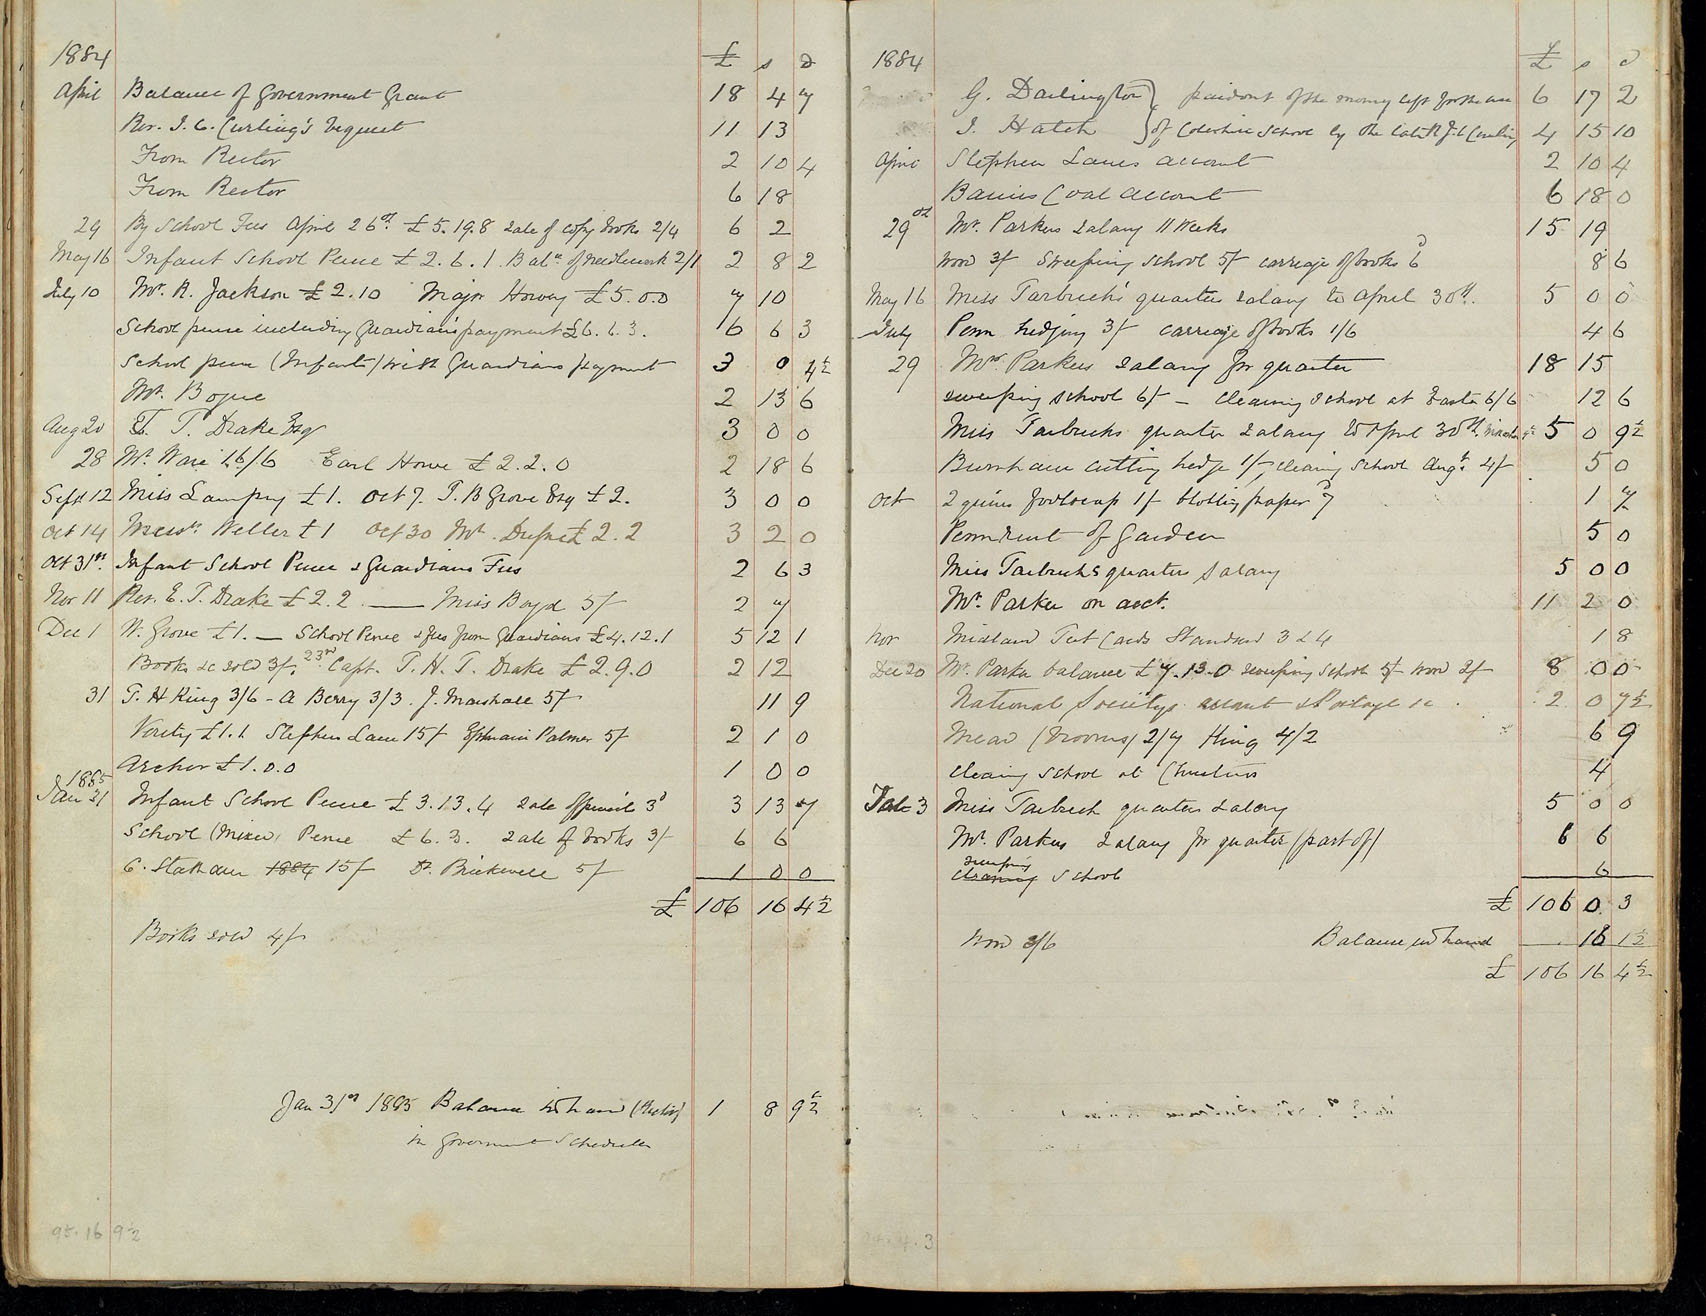 1884 £ s d
April Balance of Government Grant 18 4 7
Rev. J. C. Curling's bequest 11 13
From Rector 2 10 4
From Rector 6 18
29 By School Fees April 26th £5.19.8 sale of copy books 2/4 6 2
May 16 Infant School Pence £2.6.1. Balce of needlework 2/1 2 8 2
July 10 Mr. R. Jackson £2.10 Major Howey £5.0.0 7 10
School pence including Guardians payment £6.6.3. 6 6 3
School pence (Infants) with Guardians payment 3 0 4½
Mr. Bogue 2 13 6
Aug 20 T. T. Drake Esq 3 0 0
28 Mr. Ware 16/6 Earl Howe £2.2.0 2 18 6
Sept 12 Miss Lamprey £1. Oct 7. T. B Grove Esq £2. 3 0 0
Oct 14 Messrs Weller £1 Oct 30 Mr. Dupré £2.2 3 2 0
Oct 31st. Infant School Pence & Guardians Fees 2 6 3
Nov 11 Rev. E. T. Drake £2.2 — Miss Boyd 5/- 2 7
Dec 1 W. Grove £1. — School Pence & fees from Guardians £4.12.1 5 12 1
Books &c sold 3/-. 23rd Capt. T. H. T. Drake £2.9.0 2 12
31 T. H King 3/6 - A Berry 3/3. J. Marshall 5/- 11 9
Verity £1.1 Stephen Lane 15/- Ephraim Palmer 5/- 2 1 0
Archer £1.0.0 1 0 0
1885
Jan 31 Infant School Pence £3.13.4 sale of pencils 3d 3 13 7
School (Mixed) Pence £6.3. Sale of books 3/- 6 6
C. Statham 1884 15/- Dr. Brickwell 5/- 1 0 0
£ 106 16 4½
Books sold 4/-
Jan 31st 1885 Balance in hand (Rector) 1 8 9½
in Goverment Schedule
95.16 9½
1884 £ s d
G. Darlington } paid out of the money left for the use 6 17 2
J. Hatch } of Coleshill School by the late Rev J. C Curling 4 15 10
April Stephen Lanes account 2 10 4
Coal account 6 18 0
29th Mr. Parkers salary 11 weeks 15 19
wood 3/- Sweeping school 5/- carriage of books 6d 8 6
May 16 Miss Tarbuck's quarters salary to April 30th. 5 0 0
July Penn hedging 3/- carriage of books 1/6 4 6
29 Mr. Parkers salary for quarter 18 15
sweeping school 6/- — cleaning school at Easter 6/6 12 6
Miss Tarbucks quarter salary to April 30th. 5 0 9½
Burnham cutting hedge 1/-, cleaning school Augst. 4/- 5 0
Oct 2 quires foolscap 1/- blotting paper 7d 1 7
Penn rent of Garden 5 0
Miss Tarbucks quarters salary 5 0 0
Mr. Parker on acct. 11 2 0
Nov Midland Test Cards Standard 3 & 4 1 8
Dec 20 Mr. Parker balance £7.13.0 sweeping school 5/- wood 2/- 8 0 0
National Societys account & Postage 2 0 7½
Mead (brooms) 2/7 King 4/2 6 9
cleaning school at Christmas 4
Feb 3 Miss Tarbuck quarters salary 5 0 0
Mr. Parkers salary for quarter (part of) 6 6
sweeping
cleaning School 6
£ 106 0 3
wood 3/6 Balance in hand 16 1½
£ 106 16 4½